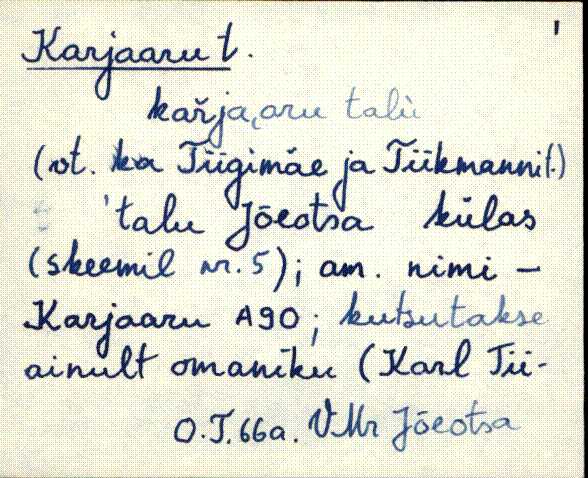 Karjaaru t.
kařja,aru talù
(vt. ka Tiigimäe ja Tiikmanni t.)
'talu Jõeotsa külas
(skeemil nr. 5); am. nimi –
Karjaaru A90; kutsutakse
ainult omaniku (Karl Tii-
O.T. 66a. VMr Jõeotsa